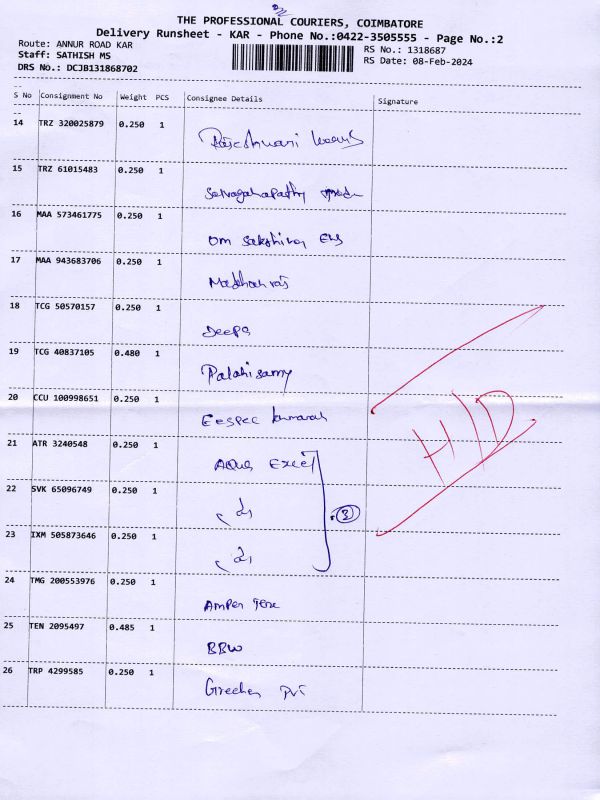 THE PROFESSIONAL COURIERS, COIMBATORE
Delivery Runsheet - KAR - Phone No.:0422-3505555 - Page No.:2
Route: ANNUR ROAD KAR
RS No.: 1318687
Staff: SATHISH MS
RS Date: 08-Feb-2024
DRS No.: DCJB131868702
S No Consignment No Weight PCS Consignee Details Signature
14 TRZ 320025879 0.250 1
Rajeshwari
15 TRZ 61015483 0.250 1
16 MAA 573461775 0.250 1
Om Sakthivel
17 MAA 943683706 0.250 1
Madhanraj
18 TCG 50570157 0.250 1
Deepa
19 TCG 40837105 0.480 1
Palanisamy
20 CCU 100998651 0.250 1
H/D
21 ATR 3240548 0.250 1
Aqua Excel
22 SVK 65096749 0.250 1
3
23 IXM 505873646 0.250 1
24 TMG 200553976 0.250 1
Amper
25 TEN 2095497 0.485 1
BBW
26 TRP 4299585 0.250 1